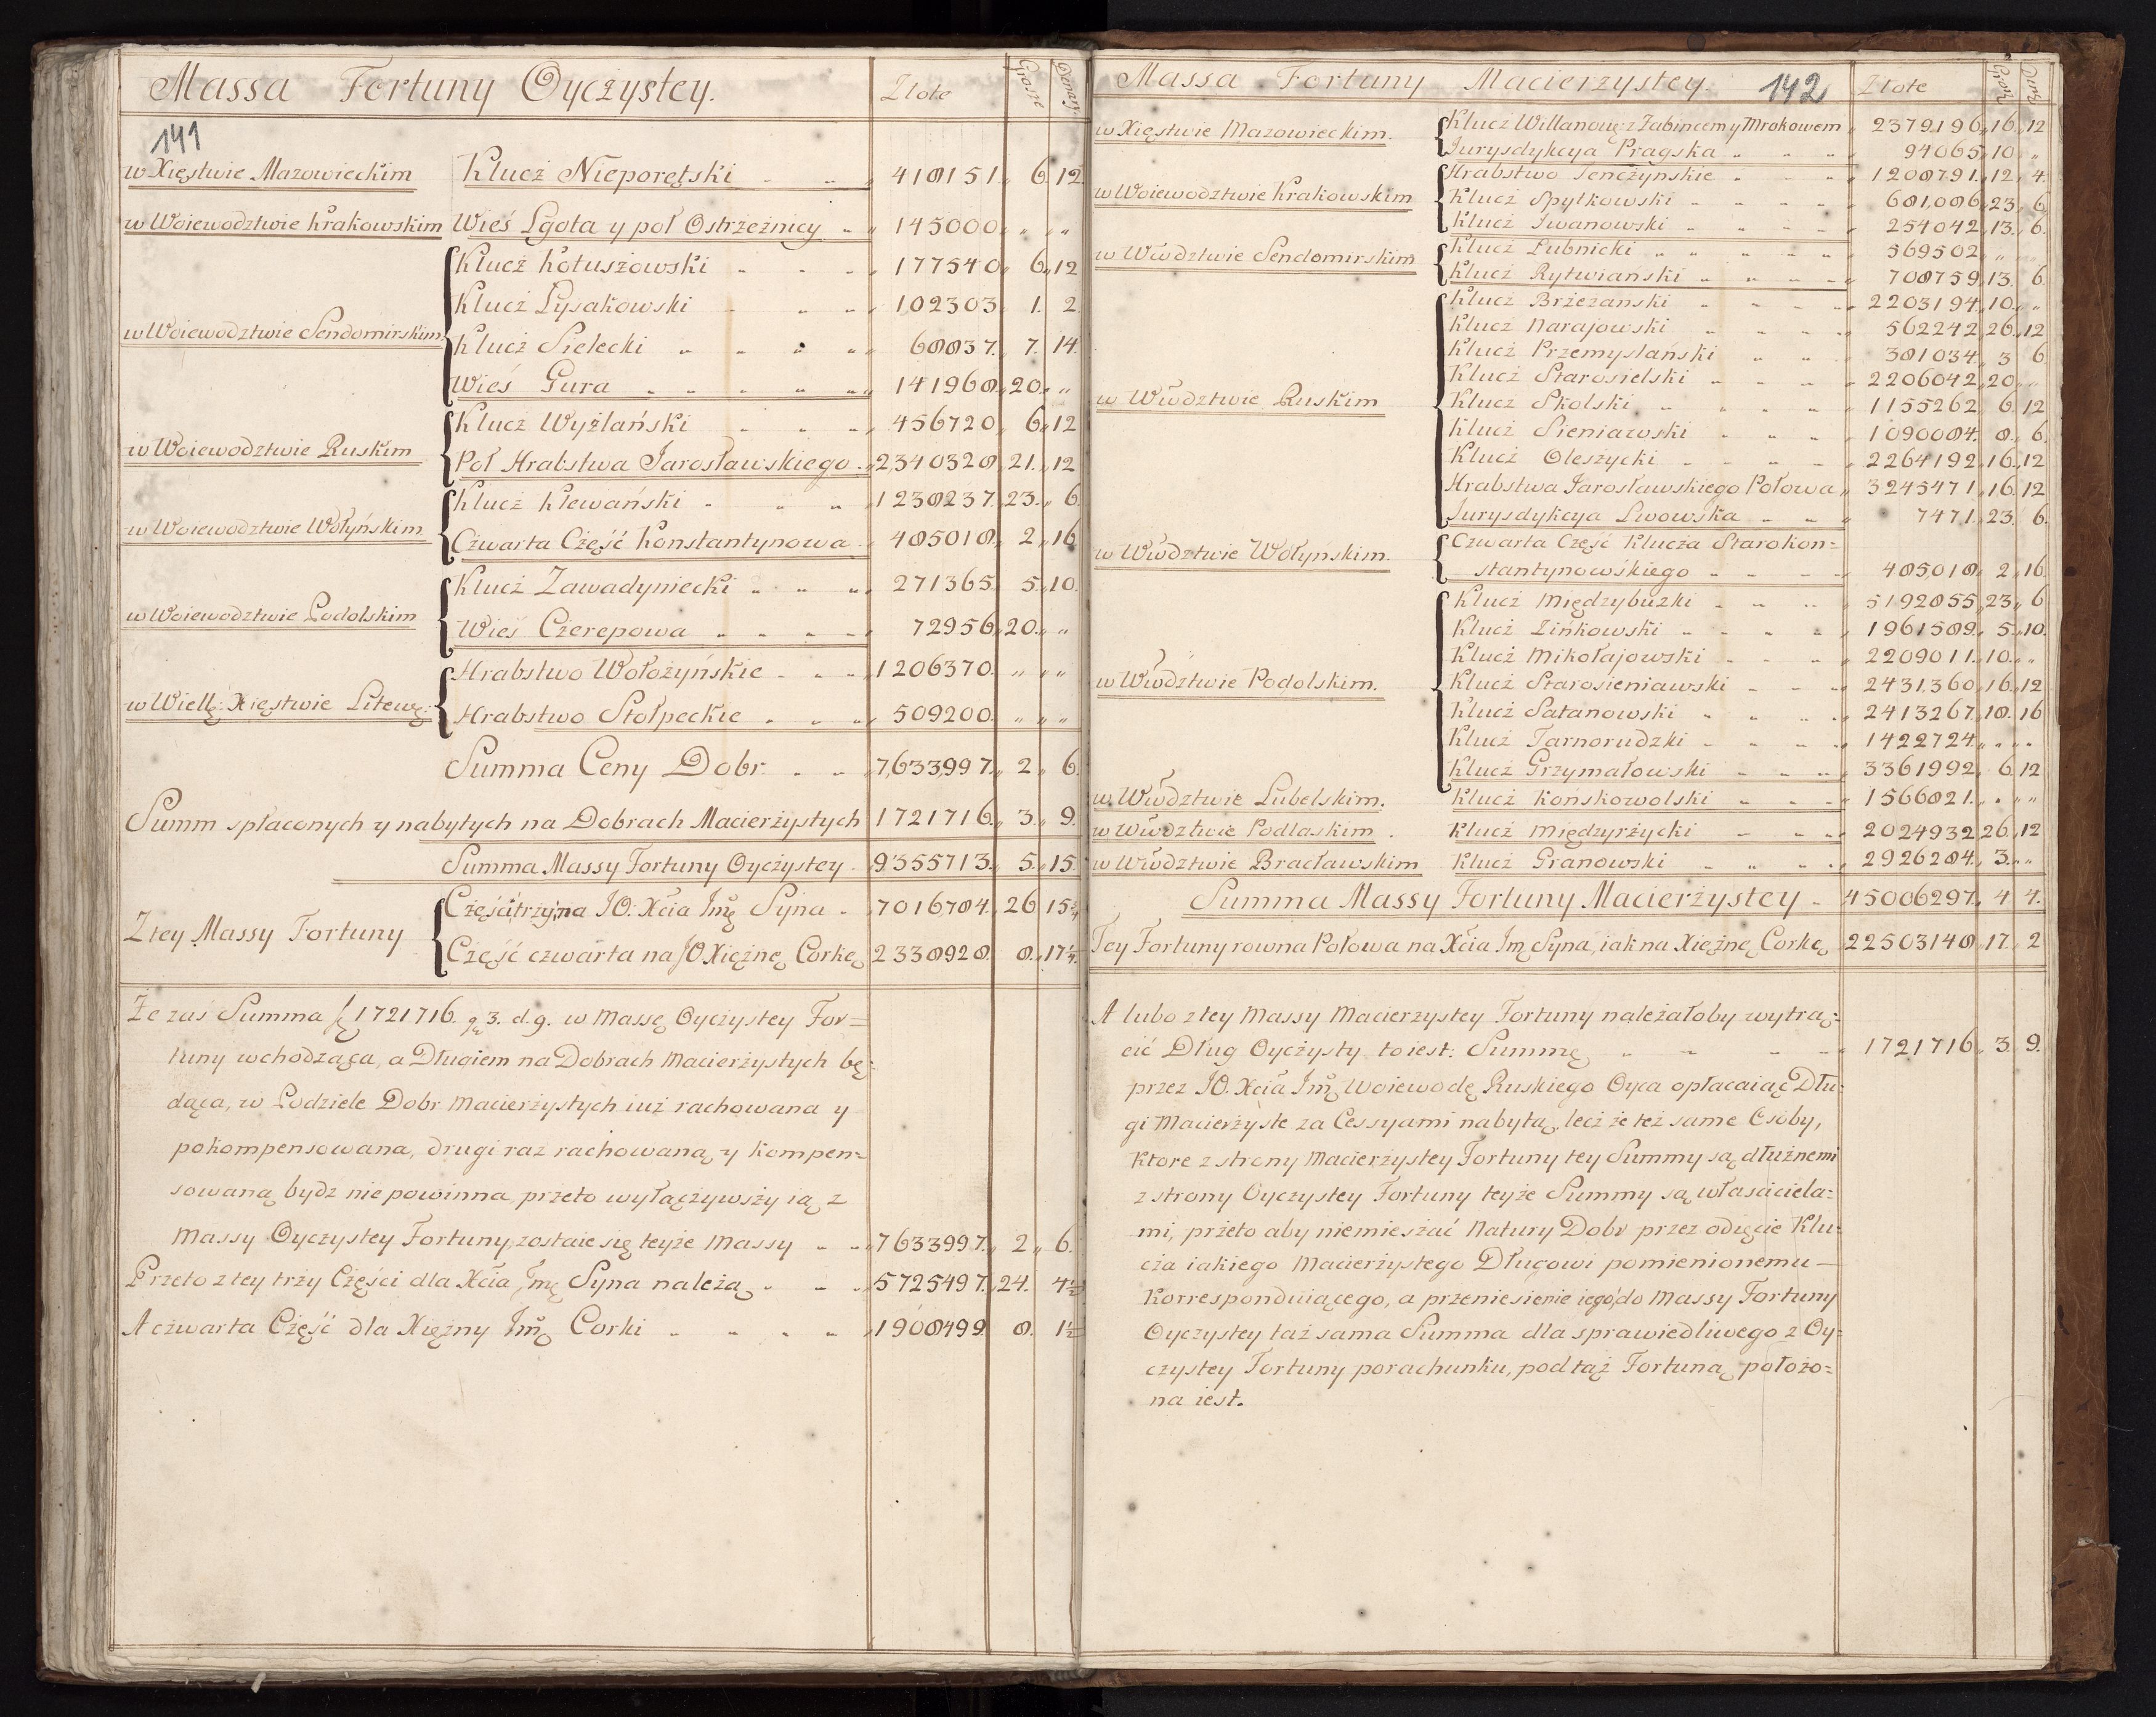 Massa Fortuny Oyczystey. Złote Grosze Denary
141
w Xięstwie Mazowieckim Klucz Nieporętski 418151. 6. 12.
w Woiewodztwie Krakowskim Wieś Lgota y poł Ostrzeżnicy 145000 " "
Klucz Kotuszowski 177540. 6. 12
Klucz Łysakowski 102303. 1. 2.
w Woiewodztwie Sendomirskim
Klucz Sielecki 68837. 7. 14.
Wieś Gura 141968. 20. "
Klucz Wyżlański 456720. 6. 12
w Woiewodztwie Ruskim
Poł Hrabstwa Jarosławskiego 2340328. 21. 12
Klucz Klewański 1238237. 23. 6.
w Woiewodztwie Wołyńskim
Czwarta Część Konstantynowa 485018. 2. 16
Klucz Zawadyniecki 271365. 5. 10.
w Woiewodztwie Podolskim
Wieś Czerepowa 72956. 20. "
Hrabstwo Wołożyńskie 1206370. " "
w Wielk: Xięstwie Litew:
Hrabstwo Stołpeckie 509200. " "
Summa Ceny Dobr 7,633,997. 2. 6.
Summ spłaconych y nabytych na Dobrach Macierzystych 1721716. 3. 9.
Summa Massy Fortuny Oyczystey 9355713. 5. 15.
Części trzy na JO: Xcia Jmę Syna 7016784. 26 15¾
Z tey Massy Fortuny
Część czwarta na JO Xiężnę Corkę 2338928. 8. 17¼
Że zaś Summa 1721716. gr 3. d. 9. w Massę Oyczystey For=
tuny wchodząca, a Długiem na Dobrach Macierzystych bę=
dąca, w Podziele Dobr Macierzystych iuż rachowana y
pokompensowana, drugi raz rachowaną y kompen=
sowaną bydz nie powinna, przeto wyłączywszy ią z
Massy Oyczystey Fortuny, zostaie się teyże Massy 7633997. 2. 6.
Przeto z tey trzy Części dla Xcia Jmę Syna należą 5725497. 24. 4½
A czwarta Część dla Xiężny Jmę Corki 1908499. 8. 1½
Massa Fortuny Macierzystey. 142 Złote Grosz Denar
w Xięstwie Mazowieckim. Klucz Willanow: z Zabincem y Mrokowem 2379,196. 16. 12
Jurysdykcya Pragska 94065. 10. "
Hrabstwo Tenczynskie 1208791. 12. 4.
w Woiewodztwie Krakowskim Klucz Spytkowski 681,086. 23. 6
Klucz Jwanowski 254042. 13. 6.
Klucz Łubnicki 569502. "
w Wwdztwie Sendomirskim
Klucz Rytwiański 708759. 13. 6.
Klucz Brzezanski 2203194. 10. "
Klucz Narajowski 562242. 26. 12
Klucz Przemyslański 381034. 3 6.
Klucz Starosielski 2206042. 20. "
w Wwdztwie Ruskim Klucz Skolski 1155262. 6. 12
Klucz Sieniawski 1090084. 8. 6.
Klucz Oleszycki 2264192. 16. 12
Hrabstwa Jarosławskiego Połowa 3245471. 16. 12
Jurysdykcya Lwowska 7471. 23. 6.
Czwarta Część Klucza Starokon=
w Wwdztwie Wołyńskim.
stantynowskiego 485,018. 2. 16.
Klucz Międzybuzki 5192855. 23. 6
Klucz Zińkowski 1961589. 5. 10.
Klucz Mikołajowski 2209011. 10. "
w Wwdztwie Podolskim. Klucz Starosieniawski 2431,360. 16. 12
Klucz Satanowski 2413267. 18. 16
Klucz Tarnorudzki 1422724. " "
Klucz Grzymałowski 3361992. 6. 12
w Wwdztwie Lubelskim. Klucz Końskowolski 1566821. " "
w Wwdztwie Podlaskim. Klucz Międzyrzycki 2024932. 26. 12
w Wwdztwie Bracławskim Klucz Granowski 2926284. 3. "
Summa Massy Fortuny Macierzystey 45006297. 4 4.
Tey Fortuny rowna Połowa na Xcia Jmę Syna, iak na Xiężnę Corkę 22503148. 17. 2
A lubo z tey Massy Macierzystey Fortuny należałoby wytrą=
cić Dług Oyczysty to iest: Summę 1721716. 3. 9.
przez JO. Xcia Jmę Woiewodę Ruskiego Oyca opłacaiąc Dłu=
gi Macierzyste za Cessyami nabytą, lecz że też same Osoby,
Ktore z strony Macierzystey Fortuny tey Summy są dłużnemi
z strony Oyczystey Fortuny teyże Summy są własciciela=
mi, przeto aby niemieszać Natury Dobr przez odięcie Klu=
cza iakiego Macierzystego Długowi pomienionemu
Korresponduiącego, a przeniesienie iego do Massy Fortuny
Oyczystey taż sama Summa dla sprawiedliwego z Oy=
czystey Fortuny porachunku, pod tąż Fortuną położo=
na iest.